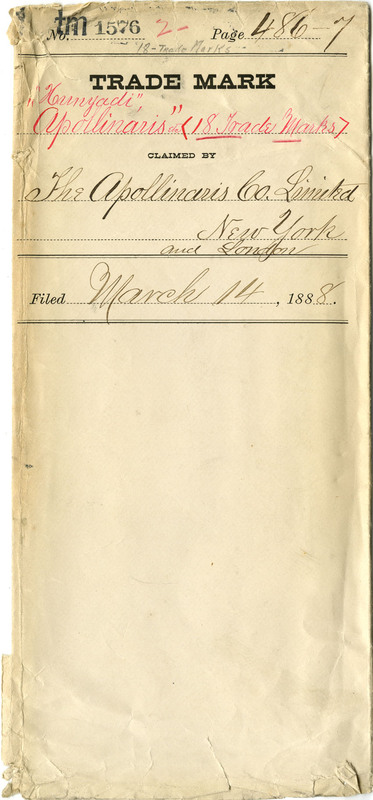 No. tm 1576 2- Page 486-7
12-Trade Marks
TRADE MARK
"Hunyadi",
Apollinaris" etc (18 Trade Marks)
CLAIMED BY
The Apollinaris Co. Limited
New York
and London
Filed March 14, 1888.